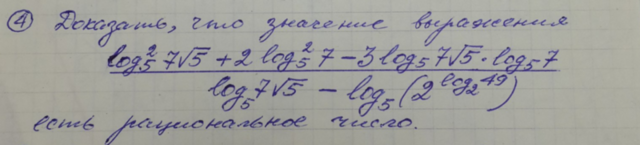 ④ Доказать, что значение выражения
log₅² 7√5 + 2 log₅² 7 − 3 log₅ 7√5 · log₅ 7
log₅ 7√5 − log₅ (2^(log₂ 49))
есть рациональное число.